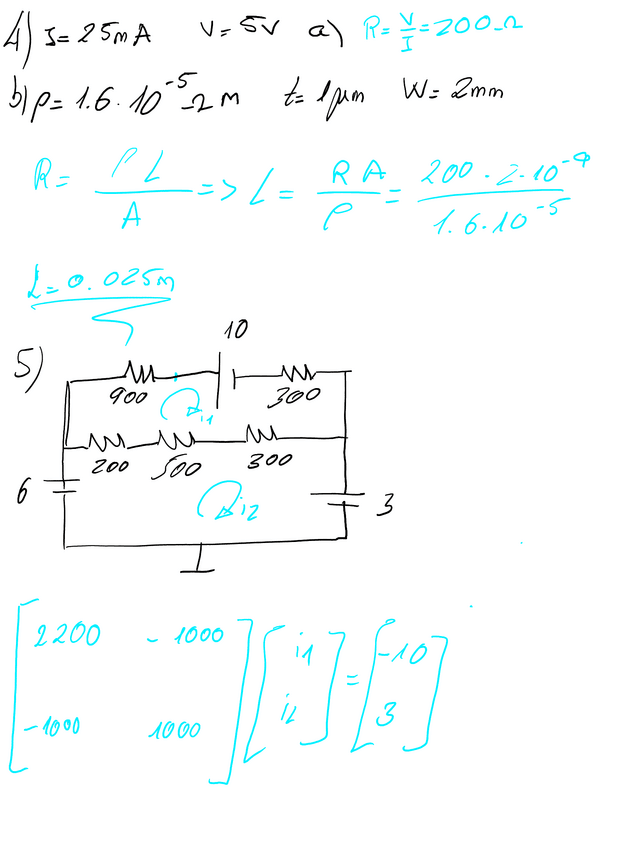 4) I = 25mA V = 5V a) R = V/I = 200Ω
b) ρ = 1.6 · 10⁻⁵ Ω m t = 1μm W = 2mm
R = ρL/A => L = RA/ρ = 200 · 2 · 10⁻⁹/1.6 · 10⁻⁵
L = 0.025m
10
5)
900 300
i1
200 500 300
6 i2 3
[2200 -1000] [i1] = [-10]
[-1000 1000] [i2] [3]